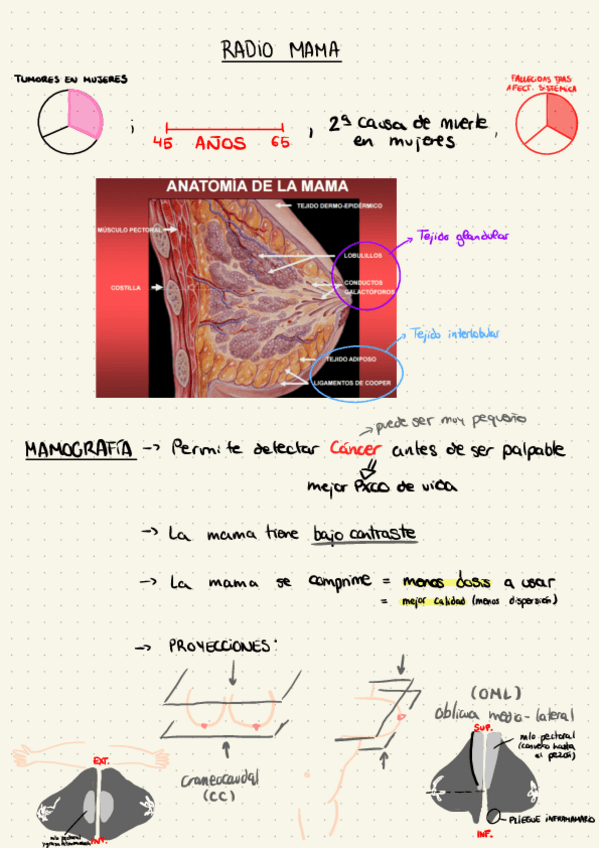 RADIO MAMA
TUMORES EN MUJERES
;
45 AÑOS 65
, 2ª causa de muerte
en mujeres,
FALLECIDAS TRAS
AFECT. SISTÉMICA
ANATOMÍA DE LA MAMA
TEJIDO DERMO-EPIDÉRMICO
MÚSCULO PECTORAL
LOBULILLOS
COSTILLA
CONDUCTOS
GALACTÓFOROS
TEJIDO ADIPOSO
LIGAMENTOS DE COOPER
Tejido glandular
Tejido interlobular
puede ser muy pequeño
MAMOGRAFÍA -> Permite detectar Cáncer antes de ser palpable
mejor PXCO de vida
-> La mama tiene bajo contraste
-> La mama se comprime = menos dosis a usar
= mejor calidad (menos dispersión)
-> PROYECCIONES:
craneocaudal
(CC)
EXT.
INT.
(OML)
oblicua medio-lateral
SUP.
mlo pectoral
(convexo hasta
el pezón)
PLIEGUE INFRAMAMARIO
INF.
mlo pectoral